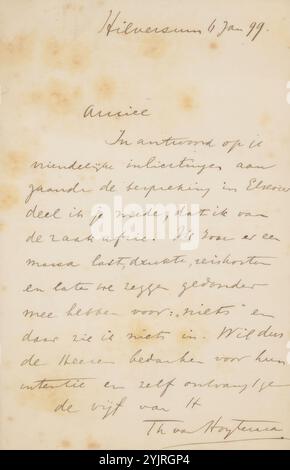 Hilversum 6 Jan 99.
Amice
In antwoord op je
vriendelijke inlichtingen aan
gaande de bespreking in Elsevier
deel ik je mede, dat ik van
de zaak afzie. Ik zou er een
massa last, drukte, reiskosten
en laten we zeggen gedonder
mee hebben voor: "niets" en
daar zie ik niets in. Wil dus
de Heeren bedanken voor hun
intentie en zelf ontvang
de vijf van
Th van Hoytema
alamy
Image ID: 2YJRGP4
www.alamy.com